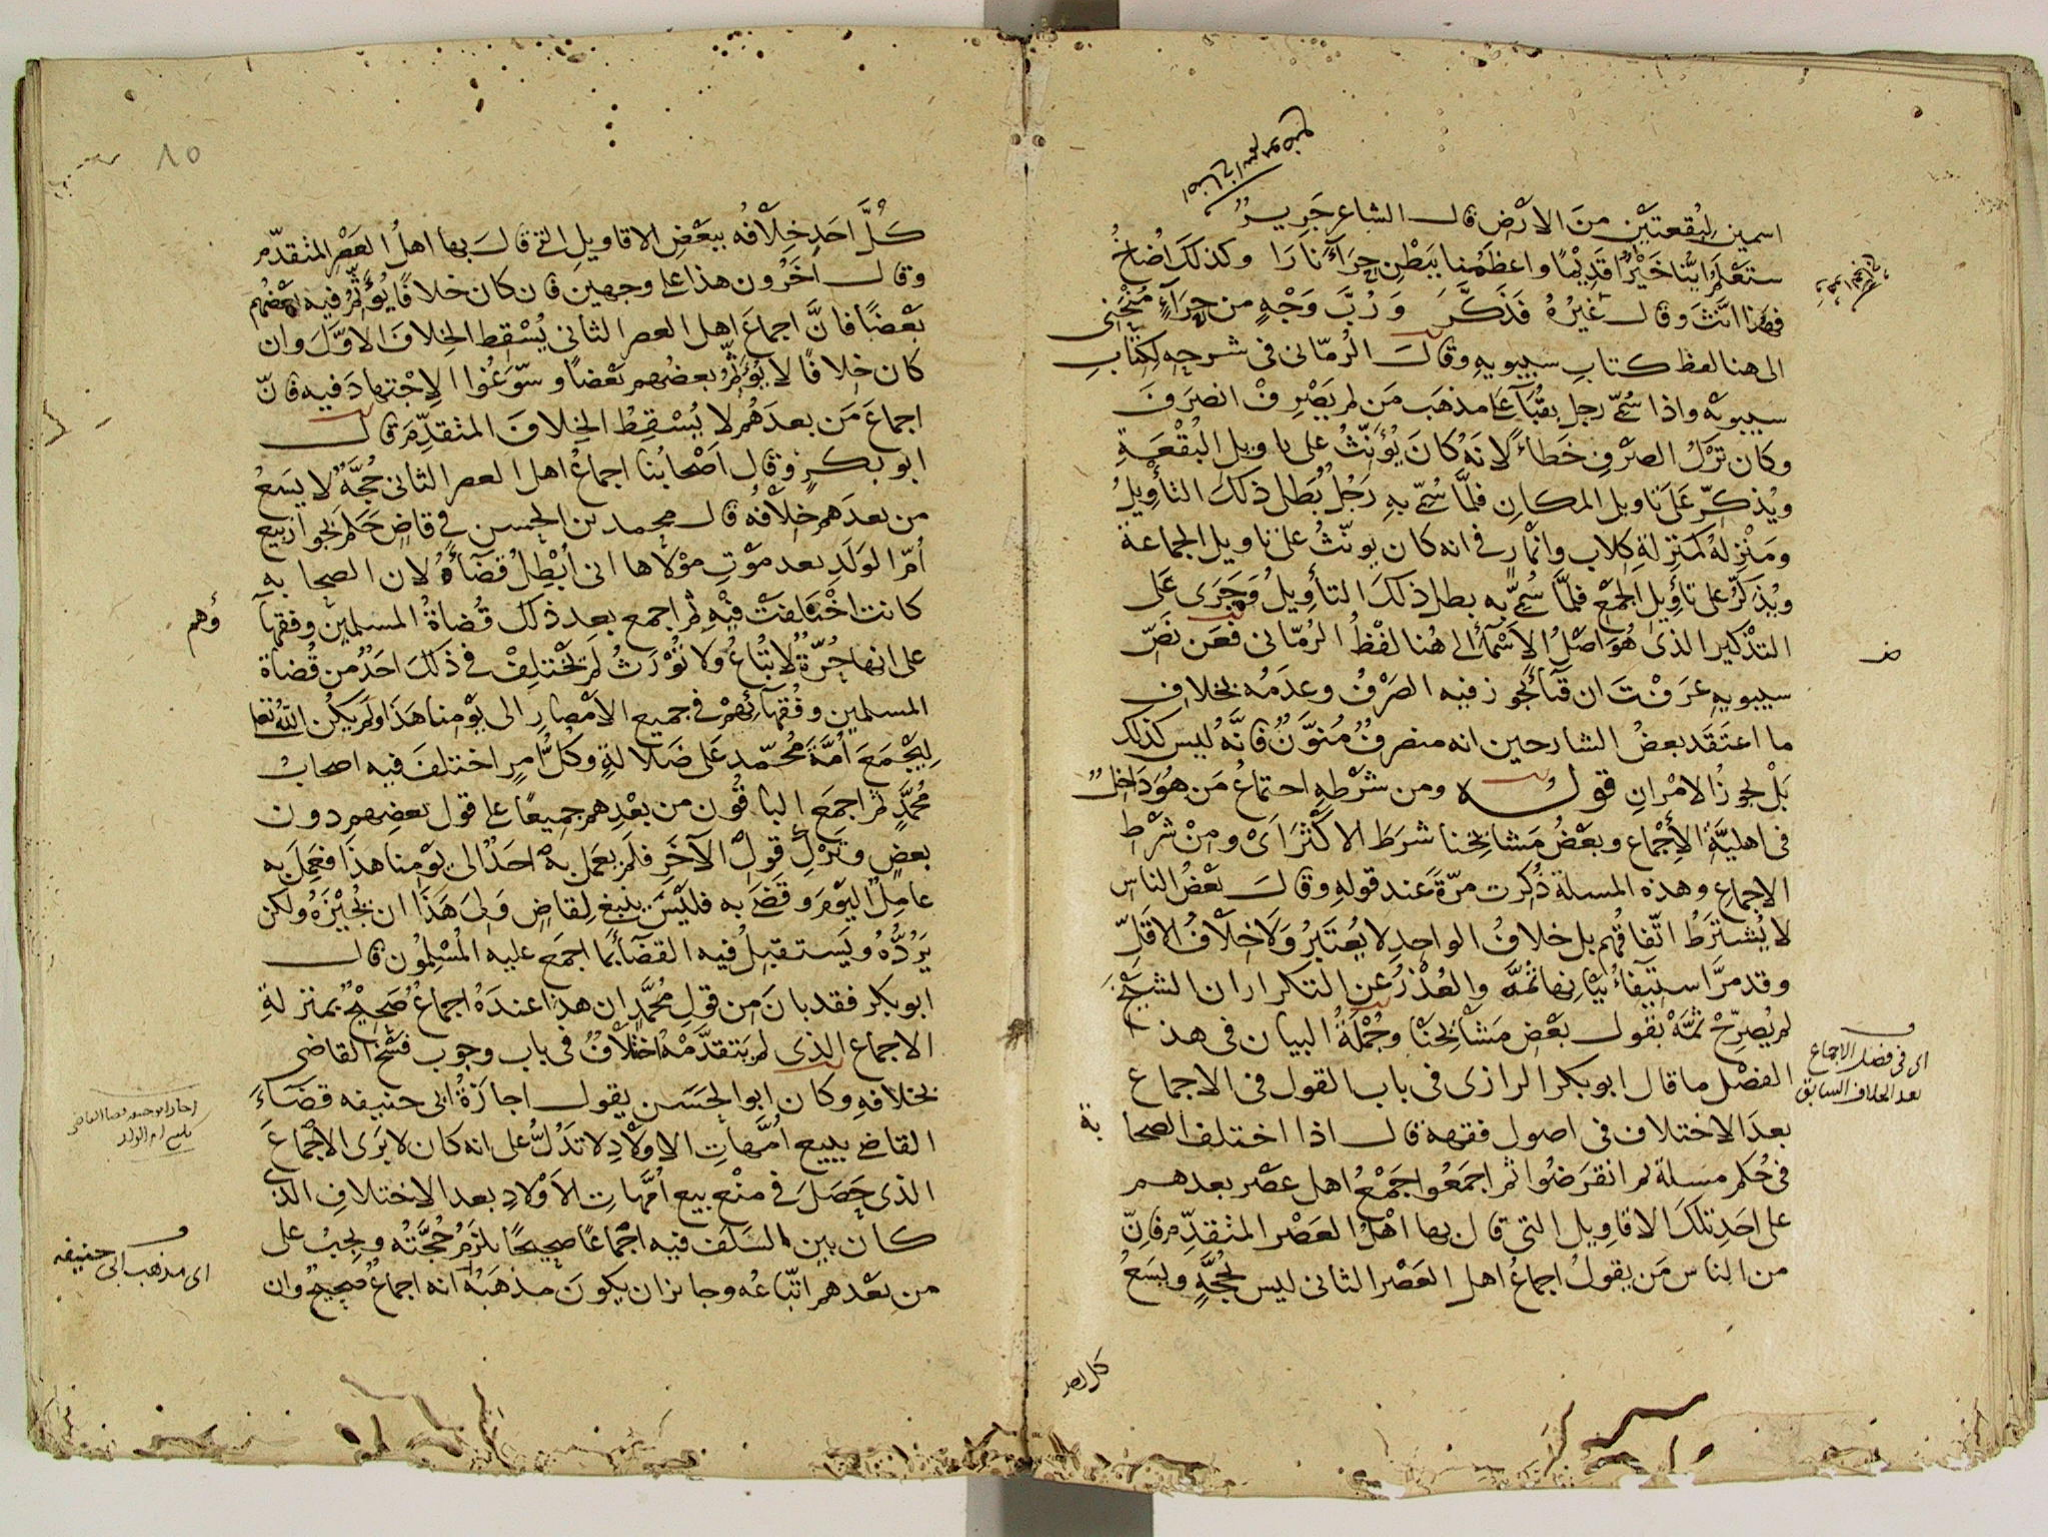 اسمين لبقعتين من الارض قال الشاعر جرير
ستعلم ايّنا خير قديما واعظمنا ببطن حراء نارا وكذلك اضاخ
فهذا انّث وقال غيره فذكّر وربّ وجه من حراء منحنى
الى هنا لفظ كتاب سيبويه وقال الرمّانى فى شرحه لكتاب
سيبويه واذا سمّى رجل بقباء على مذهب من لم يصرف انصرف
وكان ترك الصرف خطاء لانه كان يؤنّث على تاويل البقعة
ويذكّر على تاويل المكان فلمّا سمّى به رجل بطل ذلك التأويل
ومنزله كمنزلة كلاب وانمار فى انه كان يونّث على تاويل الجماعة
ويذكّر على تأويل الجمع فلمّا سمّى به بطل ذلك التأويل وجرى على
التذكير الذى هو اصل الاسماء الى هنا لفظ الرمّانى فعن نصّ
سيبويه عرفت ان قباء يجوز فيه الصرف وعدمه بخلاف
ما اعتقد بعض الشارحين انه منصرف منوّن فانّه ليس كذلك
بل يجوز الامران قوله ومن شرطه اجتماع من هو داخل
فى اهليّة الاجماع وبعض مشايخنا شرط الاكثر اى ومن شرط
الاجماع وهذه المسلة ذكرت مرّة عند قوله وقال بعض الناس
لا يشترط اتّفاقهم بل خلاف الواحد لا يعتبر ولا خلاف الاقلّ
وقد مرّ استيفاء بيانها ثمّه والعذر عن التكرار ان الشيخ
لم يصرّح ثمّه بقول بعض مشايخنا وجملة البيان فى هذا
الفصل ما قال ابو بكر الرازى فى باب القول فى الاجماع
بعد الاختلاف فى اصول فقهه قال اذا اختلف الصحابة
فى حكم مسلة ثم انقرضوا ثم اجمعوا اجمع اهل عصر بعدهم
على احد تلك الاقاويل التى قال بها اهل العصر المتقدّم فانّ
من الناس من يقول اجماع اهل العصر الثانى ليس بحجّة ويسع
اى فى فصل الاجماع
بعد الخلاف السابق
كل احد
كلّ احد خلافه ببعض الاقاويل التى قال بها اهل العصر المتقدّم
وقال آخرون هذا على وجهين فان كان خلافا يؤثّم فيه بعضهم
بعضا فانّ اجماع اهل العصر الثانى يسقط الخلاف الاوّل وان
كان خلافا لا يؤثّم بعضهم بعضا وسوّغوا الاجتهاد فيه فانّ
اجماع من بعدهم لا يسقط الخلاف المتقدّم قال
ابو بكر وقال اصحابنا اجماع اهل العصر الثانى حجّة لا يسع
من بعدهم خلافه قال محمد بن الحسن فى قاض حكم بجواز بيع
امّ الولد بعد موت مولاها انى ابطل قضاءه لان الصحابة
كانت اختلفت فيه ثم اجمع بعد ذلك قضاة المسلمين وفقهآ
ؤهم
على انها حرّة لا تباع ولا تورث لم يختلف فى ذلك احد من قضاة
المسلمين وفقهائهم فى جميع الامصار الى يومنا هذا ولم يكن الله تعا
ليجمع امّة محمّد على ضلالة وكلّ امر اختلف فيه اصحاب
محمّد ثم اجمع الباقون من بعدهم جميعا على قول بعضهم دون
بعض وترك قول الآخر فلم يعمل به احد الى يومنا هذا فعمل به
عامل اليوم وقضى به فليس ينبغى لقاض ولى هذا ان يجيزه ولكن
يردّه ويستقبل فيه القضآ بما اجمع عليه المسلمون قال
ابو بكر فقد بان من قول محمّد ان هذا عنده اجماع صحيح بمنزلة
الاجماع الذى لم يتقدّمه اختلاف فى باب وجوب فسخ القاضى
بخلافه وكان ابو الحسن يقول اجازة ابى حنيفه قضاء
القاضى ببيع امّهات الاولاد لا تدلّ على انه كان لا يرى الاجماع
الذى حصل فى منع بيع امّهات الاولاد بعد الاختلاف الذى
كان بين السلف فيه اجماعا صحيحا يلزم حجّته ويجب على
من بعدهم اتّباعه وجايز ان يكون مذهبه انه اجماع صحيح وان
اى مذهب ابى حنيفه